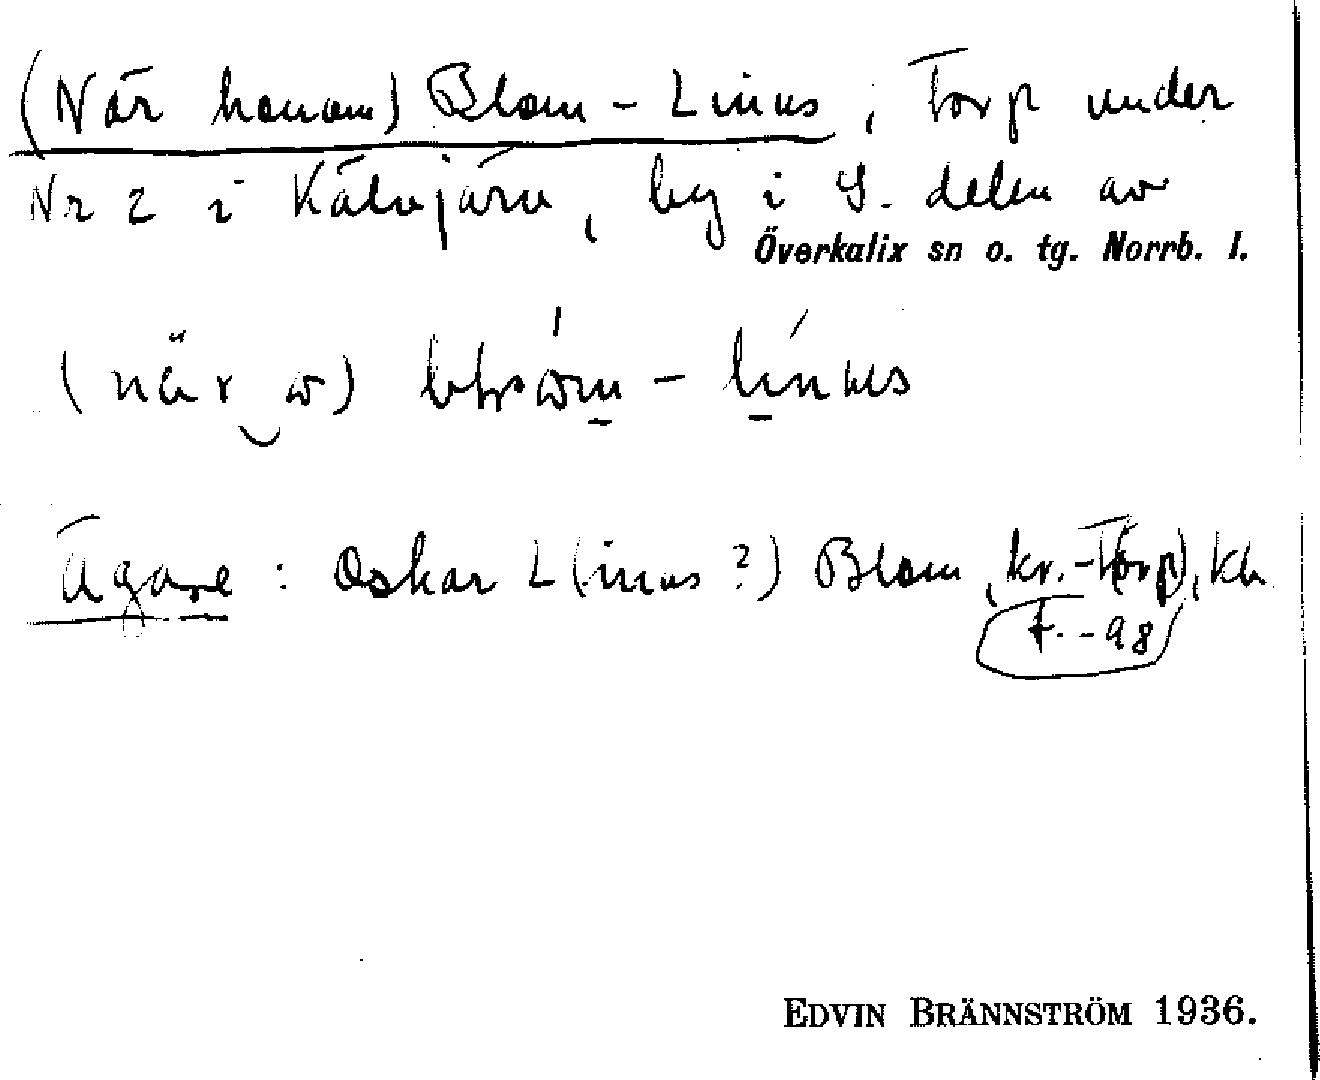 (När honom) Blom-Linus, Torp under
Nr 2 i Kälvjärv, by i S. delen av
Överkalix sn o. tg. Norrb. l.
(när
Ägare: Oskar L(inus?) Blom, kr.-Torp),
f. -98
EDVIN BRÄNNSTRÖM 1936.